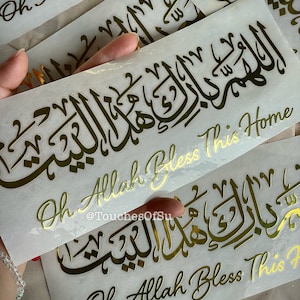 Oh A
اللهم بارك هذا البيت
Oh Allah Bless This Home
@TouchesOfSu
اللهم بارك هذا البيت
Oh Allah Bless This H